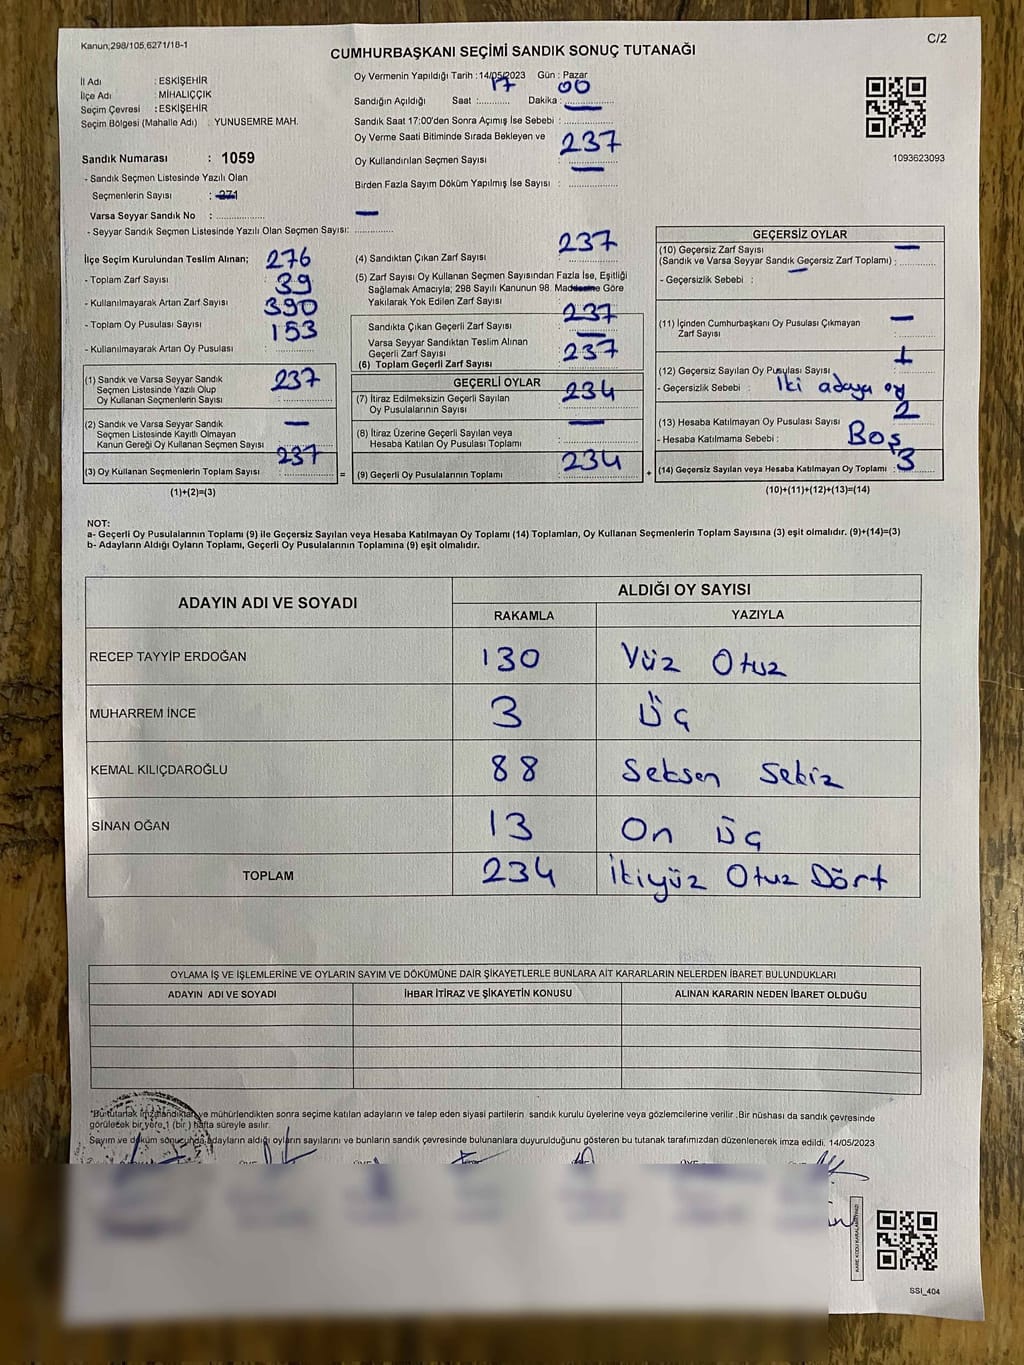 Kanun;298/105,6271/18-1
C/2
CUMHURBAŞKANI SEÇİMİ SANDIK SONUÇ TUTANAĞI
İl Adı : ESKİŞEHİR
İlçe Adı : MİHALIÇÇIK
Seçim Çevresi : ESKİŞEHİR
Seçim Bölgesi (Mahalle Adı) : YUNUSEMRE MAH.
Sandık Numarası : 1059
- Sandık Seçmen Listesinde Yazılı Olan
Seçmenlerin Sayısı : 271
Varsa Seyyar Sandık No : .................. —
- Seyyar Sandık Seçmen Listesinde Yazılı Olan Seçmen Sayısı: ..............
Oy Vermenin Yapıldığı Tarih : 14/05/2023 Gün : Pazar
Sandığın Açıldığı Saat : 17 Dakika : 00
Sandık Saat 17:00'den Sonra Açımış İse Sebebi : —
Oy Verme Saati Bitiminde Sırada Bekleyen ve
Oy Kullandırılan Seçmen Sayısı : 237
Birden Fazla Sayım Döküm Yapılmış İse Sayısı : —
1093623093
İlçe Seçim Kurulundan Teslim Alınan;
- Toplam Zarf Sayısı 276
- Kullanılmayarak Artan Zarf Sayısı 39
- Toplam Oy Pusulası Sayısı 390
- Kullanılmayarak Artan Oy Pusulası 153
(1) Sandık ve Varsa Seyyar Sandık
Seçmen Listesinde Yazılı Olup
Oy Kullanan Seçmenlerin Sayısı : 237
(2) Sandık ve Varsa Seyyar Sandık
Seçmen Listesinde Kayıtlı Olmayan
Kanun Gereği Oy Kullanan Seçmen Sayısı —
(3) Oy Kullanan Seçmenlerin Toplam Sayısı : 237
(1)+(2)=(3)
(4) Sandıktan Çıkan Zarf Sayısı : 237
(5) Zarf Sayısı Oy Kullanan Seçmen Sayısından Fazla İse, Eşitliği
Sağlamak Amacıyla; 298 Sayılı Kanunun 98. Maddesine Göre
Yakılarak Yok Edilen Zarf Sayısı : —
Sandıkta Çıkan Geçerli Zarf Sayısı : 237
Varsa Seyyar Sandıktan Teslim Alınan
Geçerli Zarf Sayısı : —
(6) Toplam Geçerli Zarf Sayısı : 237
GEÇERLİ OYLAR
(7) İtiraz Edilmeksizin Geçerli Sayılan
Oy Pusulalarının Sayısı : 234
(8) İtiraz Üzerine Geçerli Sayılan veya
Hesaba Katılan Oy Pusulası Toplamı : —
=
(9) Geçerli Oy Pusulalarının Toplamı : 234
+
GEÇERSİZ OYLAR
(10) Geçersiz Zarf Sayısı
(Sandık ve Varsa Seyyar Sandık Geçersiz Zarf Toplamı) : —
- Geçersizlik Sebebi : —
(11) İçinden Cumhurbaşkanı Oy Pusulası Çıkmayan
Zarf Sayısı : —
(12) Geçersiz Sayılan Oy Pusulası Sayısı : 1
- Geçersizlik Sebebi : İki adaya oy
(13) Hesaba Katılmayan Oy Pusulası Sayısı : 2
- Hesaba Katılmama Sebebi : Boş
(14) Geçersiz Sayılan veya Hesaba Katılmayan Oy Toplamı : 3
(10)+(11)+(12)+(13)=(14)
NOT:
a- Geçerli Oy Pusulalarının Toplamı (9) ile Geçersiz Sayılan veya Hesaba Katılmayan Oy Toplamı (14) Toplamları, Oy Kullanan Seçmenlerin Toplam Sayısına (3) eşit olmalıdır. (9)+(14)=(3)
b- Adayların Aldığı Oyların Toplamı, Geçerli Oy Pusulalarının Toplamına (9) eşit olmalıdır.
ADAYIN ADI VE SOYADI ALDIĞI OY SAYISI
RAKAMLA YAZIYLA
RECEP TAYYİP ERDOĞAN 130 Yüz Otuz
MUHARREM İNCE 3 Üç
KEMAL KILIÇDAROĞLU 88 Seksen Sekiz
SİNAN OĞAN 13 On Üç
TOPLAM 234 İkiyüz Otuz Dört
OYLAMA İŞ VE İŞLEMLERİNE VE OYLARIN SAYIM VE DÖKÜMÜNE DAİR ŞİKAYETLERLE BUNLARA AİT KARARLARIN NELERDEN İBARET BULUNDUKLARI
ADAYIN ADI VE SOYADI İHBAR İTİRAZ VE ŞİKAYETİN KONUSU ALINAN KARARIN NEDEN İBARET OLDUĞU
*Bu tutanak imzalandıktan ve mühürlendikten sonra seçime katılan adayların ve talep eden siyasi partilerin sandık kurulu üyelerine veya gözlemcilerine verilir .Bir nüshası da sandık çevresinde
görülecek bir yere 1 (bir ) hafta süreyle asılır.
Sayım ve döküm sonucunda adayların aldığı oyların sayılarını ve bunların sandık çevresinde bulunanlara duyurulduğunu gösteren bu tutanak tarafımızdan düzenlenerek imza edildi. 14/05/2023
SSI_404